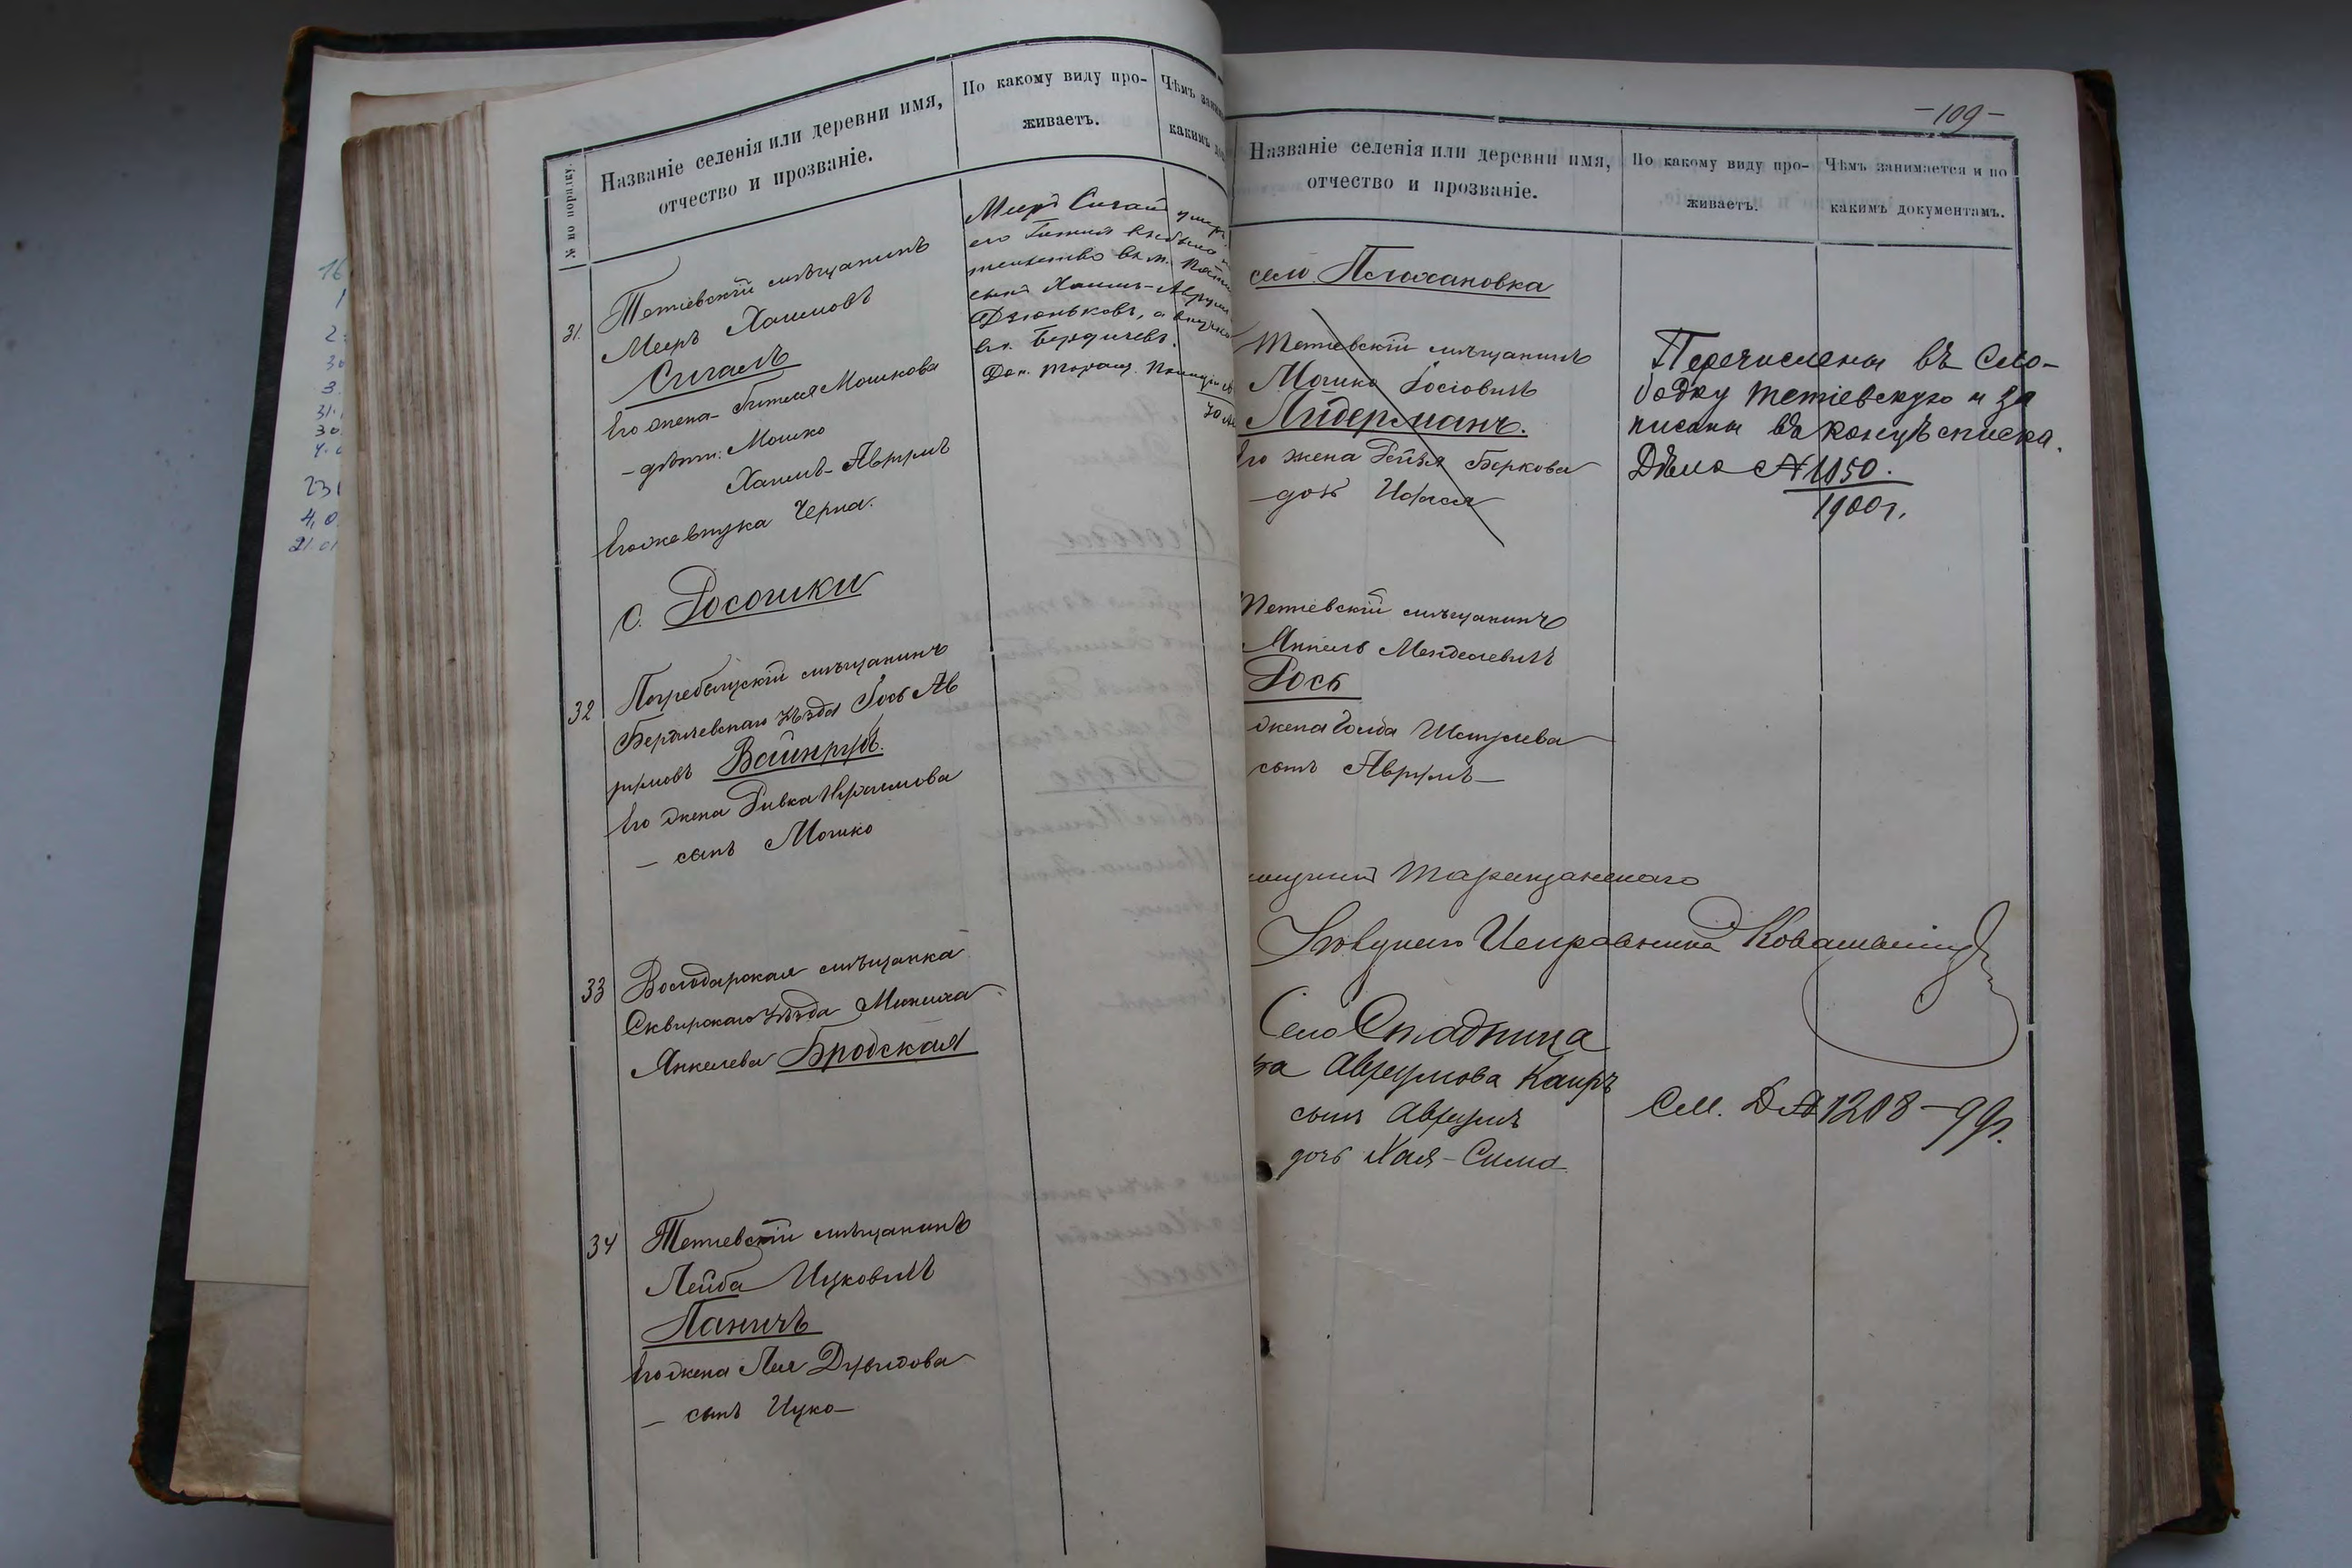 № по порядку.
Названіе селенія или деревни имя,
отчество и прозваніе.
По какому виду про-
живаетъ.
Чѣмъ
какимъ
31.
Тетіевскій мѣщанинъ
Меиръ Хаимовъ
Сигалъ
Его жена Мошкова
- дѣти: Мошко
Хаимъ-Аврумъ
Его же внучка Черна.
Меиръ Сигалъ
его выбыла
въ м.
сынъ Хаимъ-Аврумъ
Дзюньковъ, а внучка
въ г. Бердичевъ.
Дон. Таращ.
с. Росошки
32
Погребыщскій мѣщанинъ
Бердичевскаго уѣзда Іось Ав
румовъ Вайнрубъ.
Его жена Ривка
— сынъ Мошко
33
Володарская мѣщанка
Сквирскаго уѣзда
Янкелева Бродская
34
Тетіевскій мѣщанинъ
Лейба Ицковичъ
Паничъ
Его жена Лея Дувидова
— сынъ Ицко —
— 109 —
Названіе селенія или деревни имя,
отчество и прозваніе.
По какому виду про-
живаетъ.
Чѣмъ занимается и по
какимъ документамъ.
село Плохановка
Тетіевскій мѣщанинъ
Мошко Іосіовичъ
Лидерманъ.
Его жена Рейзя Беркова
— дочь
Перечислены въ Сло-
бодку Тетіевскую и за
писаны въ концѣ списка.
Дѣло № 1050.
1900 г.
Тетіевскій мѣщанинъ
Янкель Менделевичъ
Рось
жена Голда Шмулева
сынъ Аврумъ —
Таращанскаго
Исправника
Село Стадница
Аврумова Каиръ
сынъ Аврумъ
дочь Хая-Сима
См. Д № 1208 — 99 г.